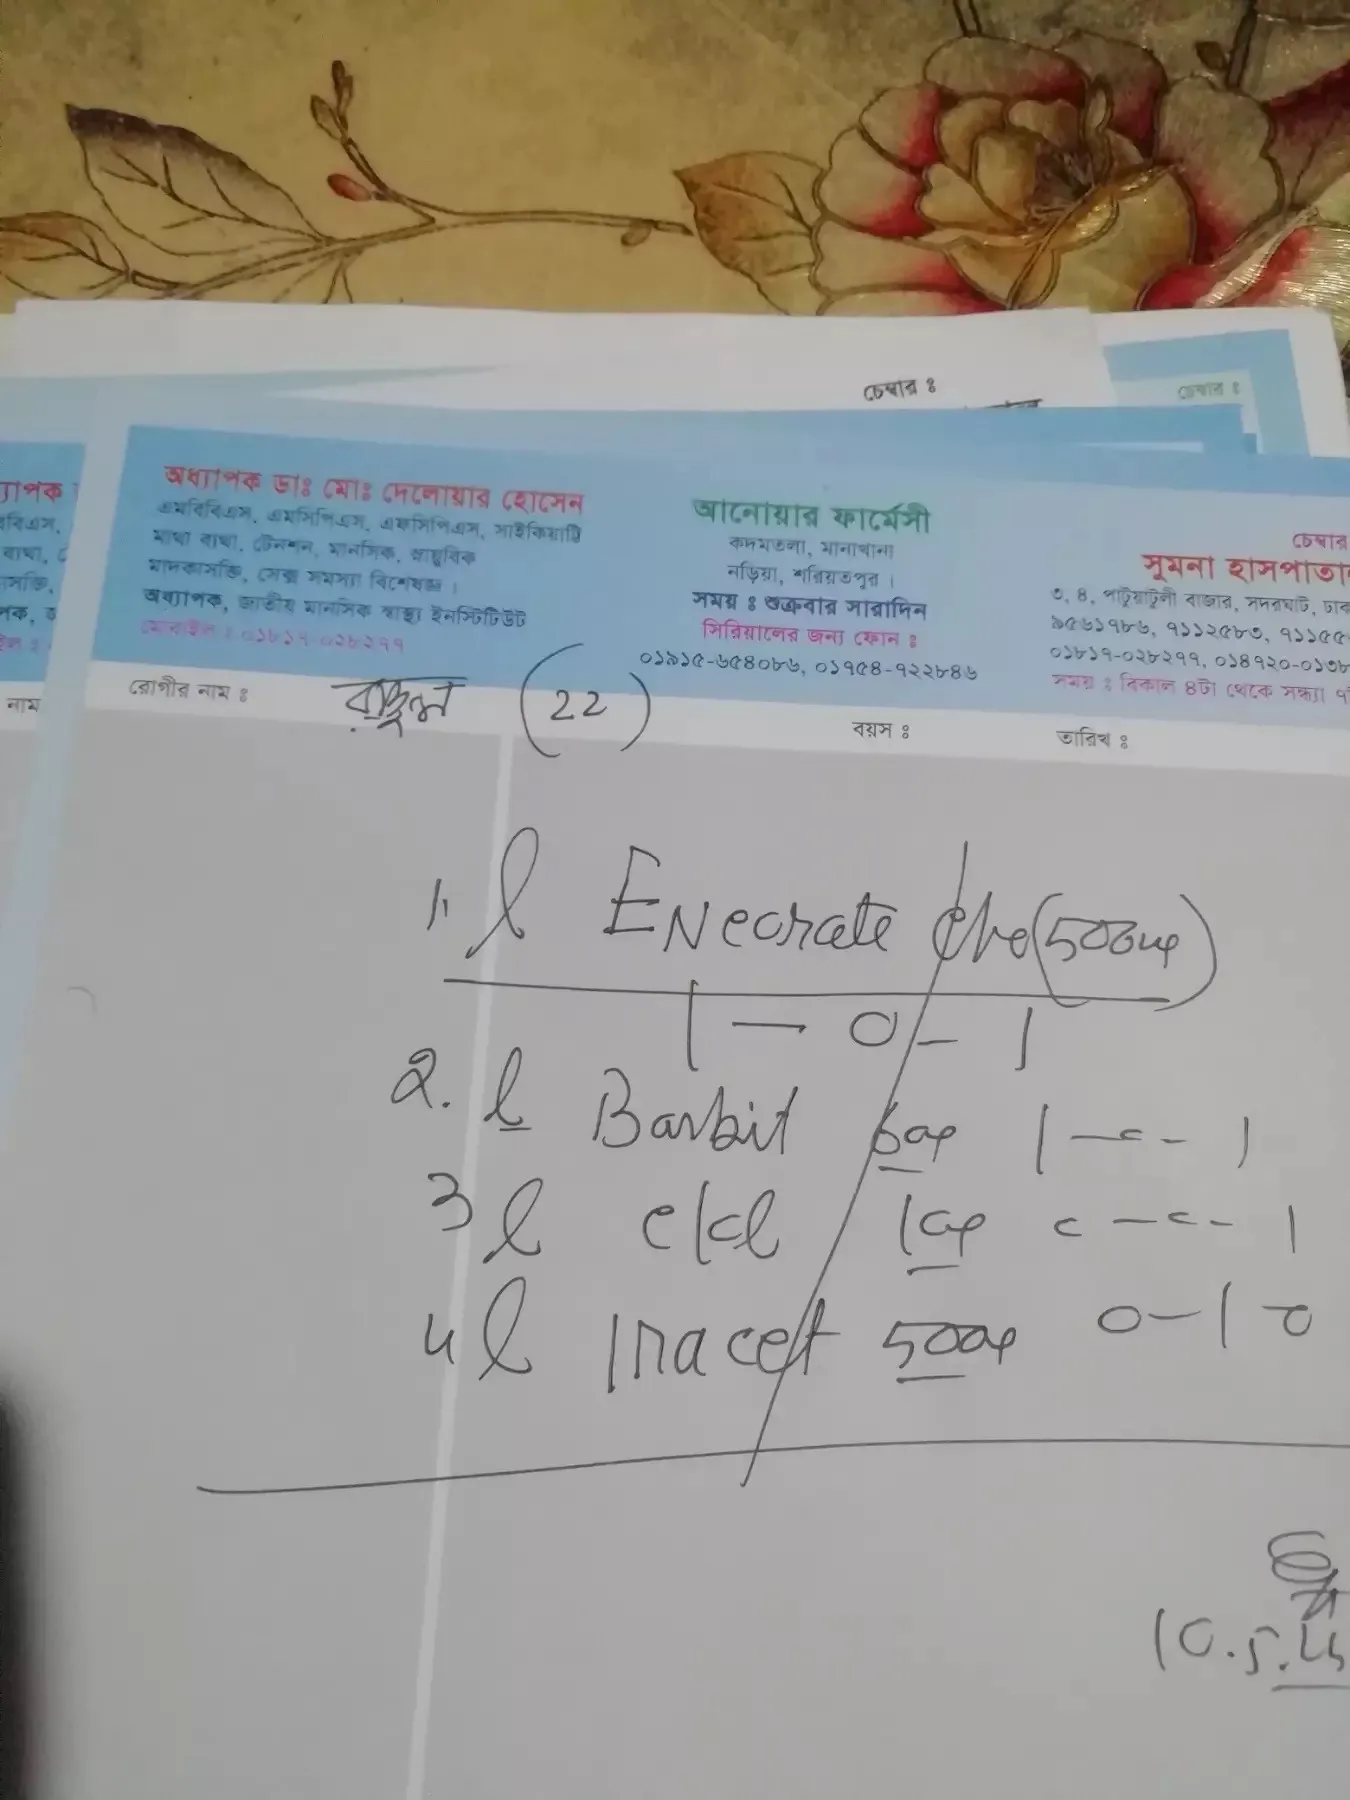 চেম্বার ঃ
চেম্বার ঃ
অধ্যাপক ডাঃ মোঃ দেলোয়ার হোসেন
এমবিবিএস, এমসিপিএস, এফসিপিএস, সাইকিয়াট্রি
মাথা ব্যথা, টেনশন, মানসিক, স্নায়ুবিক
মাদকাসক্তি, সেক্স সমস্যা বিশেষজ্ঞ।
অধ্যাপক, জাতীয় মানসিক স্বাস্থ্য ইনস্টিটিউট
মোবাইল ঃ ০১৮১৭-০২৮২৭৭
আনোয়ার ফার্মেসী
কদমতলা, মানাখানা
নড়িয়া, শরিয়তপুর।
সময় ঃ শুক্রবার সারাদিন
সিরিয়ালের জন্য ফোন ঃ
০১৯১৫-৬৫৪০৮৬, ০১৭৫৪-৭২২৮৪৬
চেম্বার
সুমনা হাসপাতাল
৩, ৪, পাটুয়াটুলী বাজার, সদরঘাট, ঢাক
৯৫৬১৭৮৬, ৭১১২৫৮৩, ৭১১৫৫
০১৮১৭-০২৮২৭৭, ০১৪৭২০-০১৩৮
সময় ঃ বিকাল ৪টা থেকে সন্ধ্যা ৭
রোগীর নাম ঃ (22) বয়স ঃ তারিখ ঃ
1. Enecrate (500mg)
1 — 0 — 1
2. Barbit 1 — 0 — 1
3 1mg 0 — 0 — 1
4 Iracet 500mg 0 — 1 0
10.5.